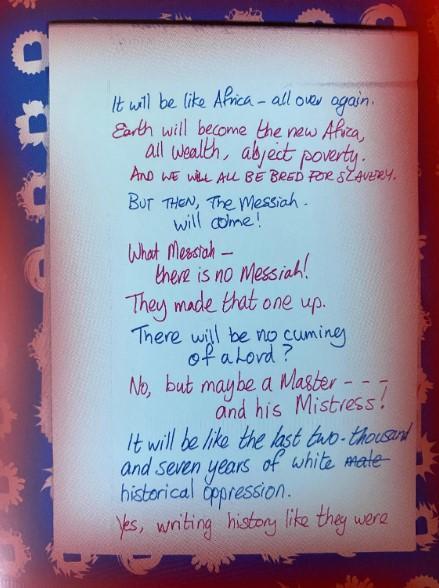 It will be like Africa – all over again.
Earth will become the new Africa,
all wealth, abject poverty.
AND WE WILL ALL BE BRED FOR SLAVERY.
BUT THEN, The Messiah.
will come!
What Messiah –
there is no Messiah!
They made that one up.
There will be no cuming
of a Lord?
No, but maybe a Master - - -
and his Mistress!
It will be like the last two-thousand
and seven years of white male
historical oppression.
Yes, writing history like they were